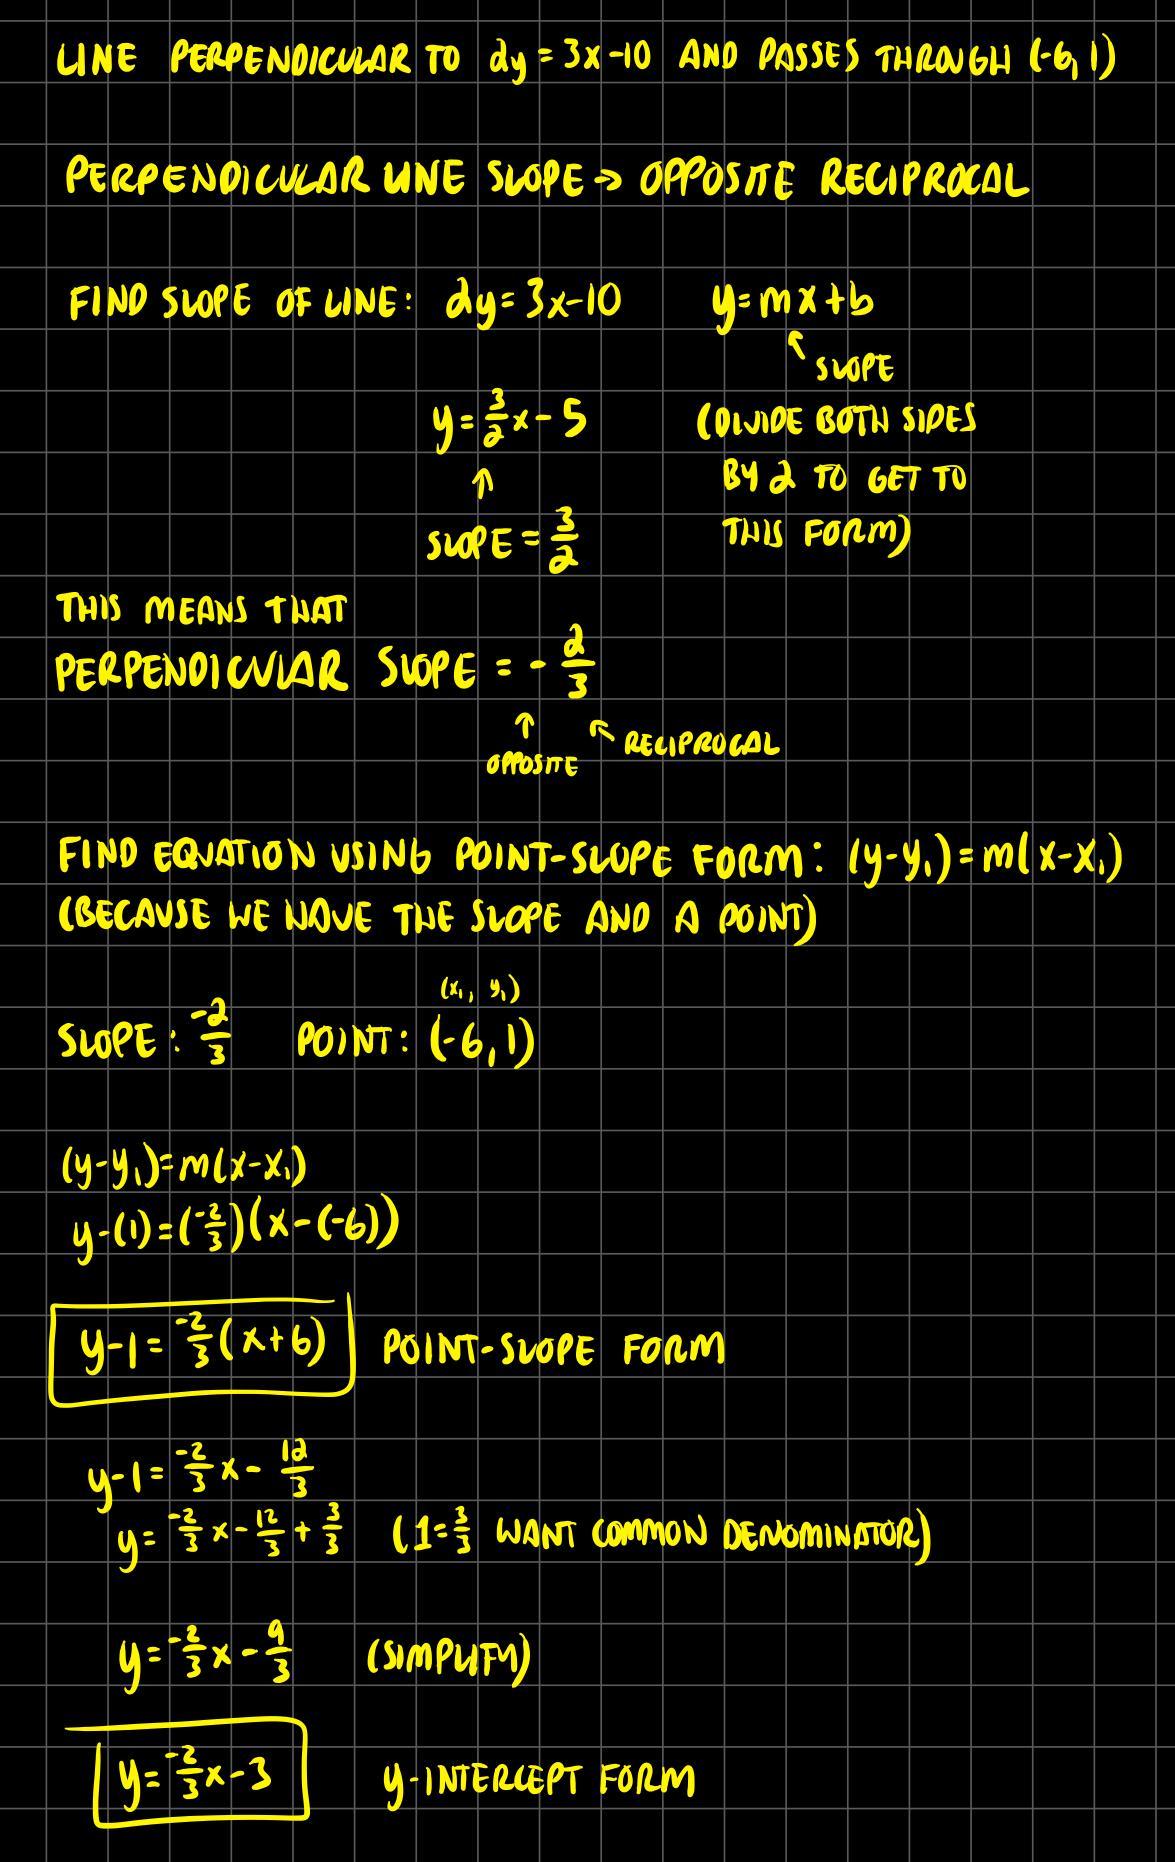 LINE PERPENDICULAR TO 2y = 3x - 10 AND PASSES THROUGH (-6, 1)
PERPENDICULAR LINE SLOPE → OPPOSITE RECIPROCAL
FIND SLOPE OF LINE: 2y = 3x - 10 y = mx + b
↖ SLOPE
y = 3/2 x - 5 (DIVIDE BOTH SIDES
↑ BY 2 TO GET TO
SLOPE = 3/2 THIS FORM)
THIS MEANS THAT
PERPENDICULAR SLOPE = - 2/3
↑ ↖ RECIPROCAL
OPPOSITE
FIND EQUATION USING POINT-SLOPE FORM: (y - y₁) = m(x - x₁)
(BECAUSE WE HAVE THE SLOPE AND A POINT)
(x₁, y₁)
SLOPE: -2/3 POINT: (-6, 1)
(y - y₁) = m(x - x₁)
y - (1) = (-2/3)(x - (-6))
y - 1 = -2/3 (x + 6) POINT-SLOPE FORM
y - 1 = -2/3 x - 12/3
y = -2/3 x - 12/3 + 3/3 (1 = 3/3 WANT COMMON DENOMINATOR)
y = -2/3 x - 9/3 (SIMPLIFY)
y = -2/3 x - 3 y-INTERCEPT FORM